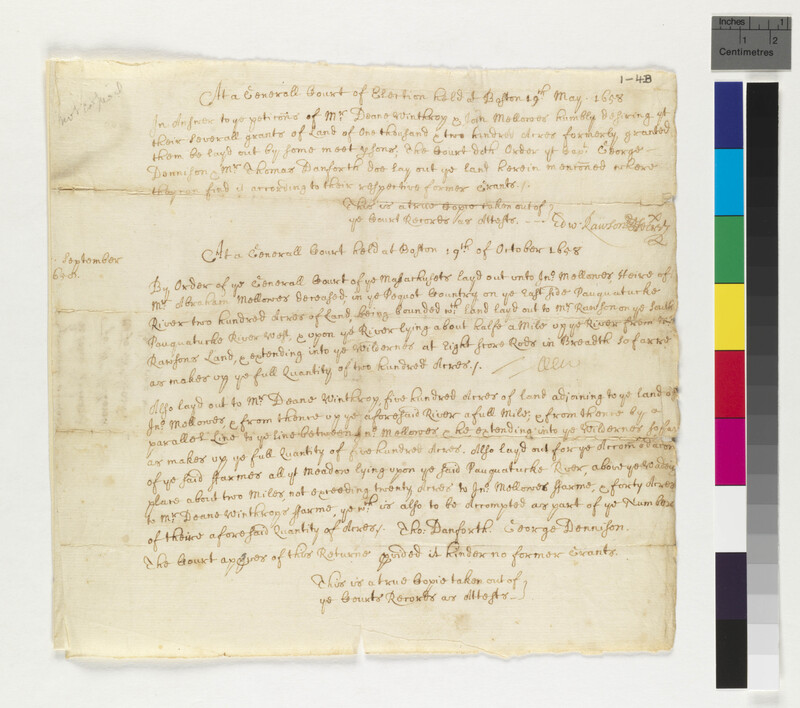 1-4B
not to read
At a Generall Court of Election held at Boston 19th May. 1658
In Answer to ye peticons of Mr. Deane Winthrop & John Mellowes humbly desiring yt
their severall grants of Land of One thousand & two hundred Acres formerly granted
them be layd out by some meet psons, The Court doth Order yt George
Dennison & Mr. Thomas Danforth doe lay out ye land herein mentioned where
they can find it according to their respective former Grants./.
This is a true Copie taken out of
ye Court Records as Attests. Edw: Rawson Secrety
At a Generall Court held at Boston 19th of October 1658
September
By Order of ye Generall Court of ye Massachusets layd out unto Jno. Mellowes Heire of
Mr. Abraham Mellowes deceased, in ye Pequot Country on ye East side Pauquatucke
River two hundred Acres of Land, being bounded wth land layd out to Mr. Rawson on ye South
Pauquatucke River West, & upon ye River lying about halfe a Mile up ye River from Mr.
Rawsons Land, & extending into ye Wildernes at Eight score Rods in Breadth so farre
as makes up ye full Quantity of two hundred Acres./.
Also layd out to Mr. Deane Winthrop five hundred Acres of land adjoining to ye land of
Jno. Mellowes & from thence up ye aforesaid River a full Mile, & from thence by a
parallel Line to ye line between Jno. Mellowes & he extending into ye Wildernes so far
as makes up ye full Quantity of five hundred Acres. Also layd out for ye Accomodacon
of ye said ffarmes all yt Meadow lying upon ye said Pauquatucke River, above ye wading
place about two Miles, not exceeding twenty Acres to Jno. Mellowes ffarme, & forty Acres
to Mr. Deane Winthrops ffarme, ye wch is also to be accompted as part of ye Number
of theire aforesaid Quantity of Acres/. Tho: Danforth. George Dennison.
The Court approves of this Returne pvided it hinder no former Grants.
This is a true Copie taken out of
ye Courts Records as Attests
Inches 1
1 2
Centimetres